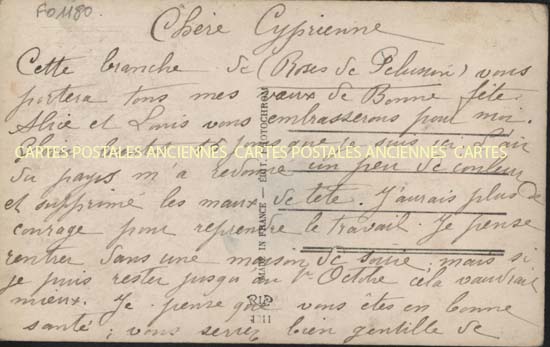 FO1180.
Chère Cyprienne
Cette branche de (Roses de Pelussin) vous
portera tous mes vœux de Bonne fête.
Alice et Louis vous embrasserons pour moi.
CARTES POSTALES ANCIENNES CARTES POSTALES ANCIENNES CARTES
du pays m'a redonné un peu de couleur
et supprimé les maux de tête. J'aurais plus de
courage pour reprendre le travail. Je pense
rentrer dans une maison de soure; mais si
je puis rester jusqu'au 1er Octobre cela vaudrait
mieux. Je pense que vous êtes en bonne
santé; vous serrez bien gentille de
MADE IN FRANCE — EDIT. PHOTOCHROM